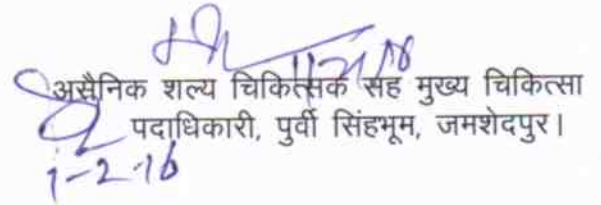 असैनिक शल्य चिकित्सक सह मुख्य चिकित्सा
पदाधिकारी, पुर्वी सिंहभूम, जमशेदपुर।
1-2-16